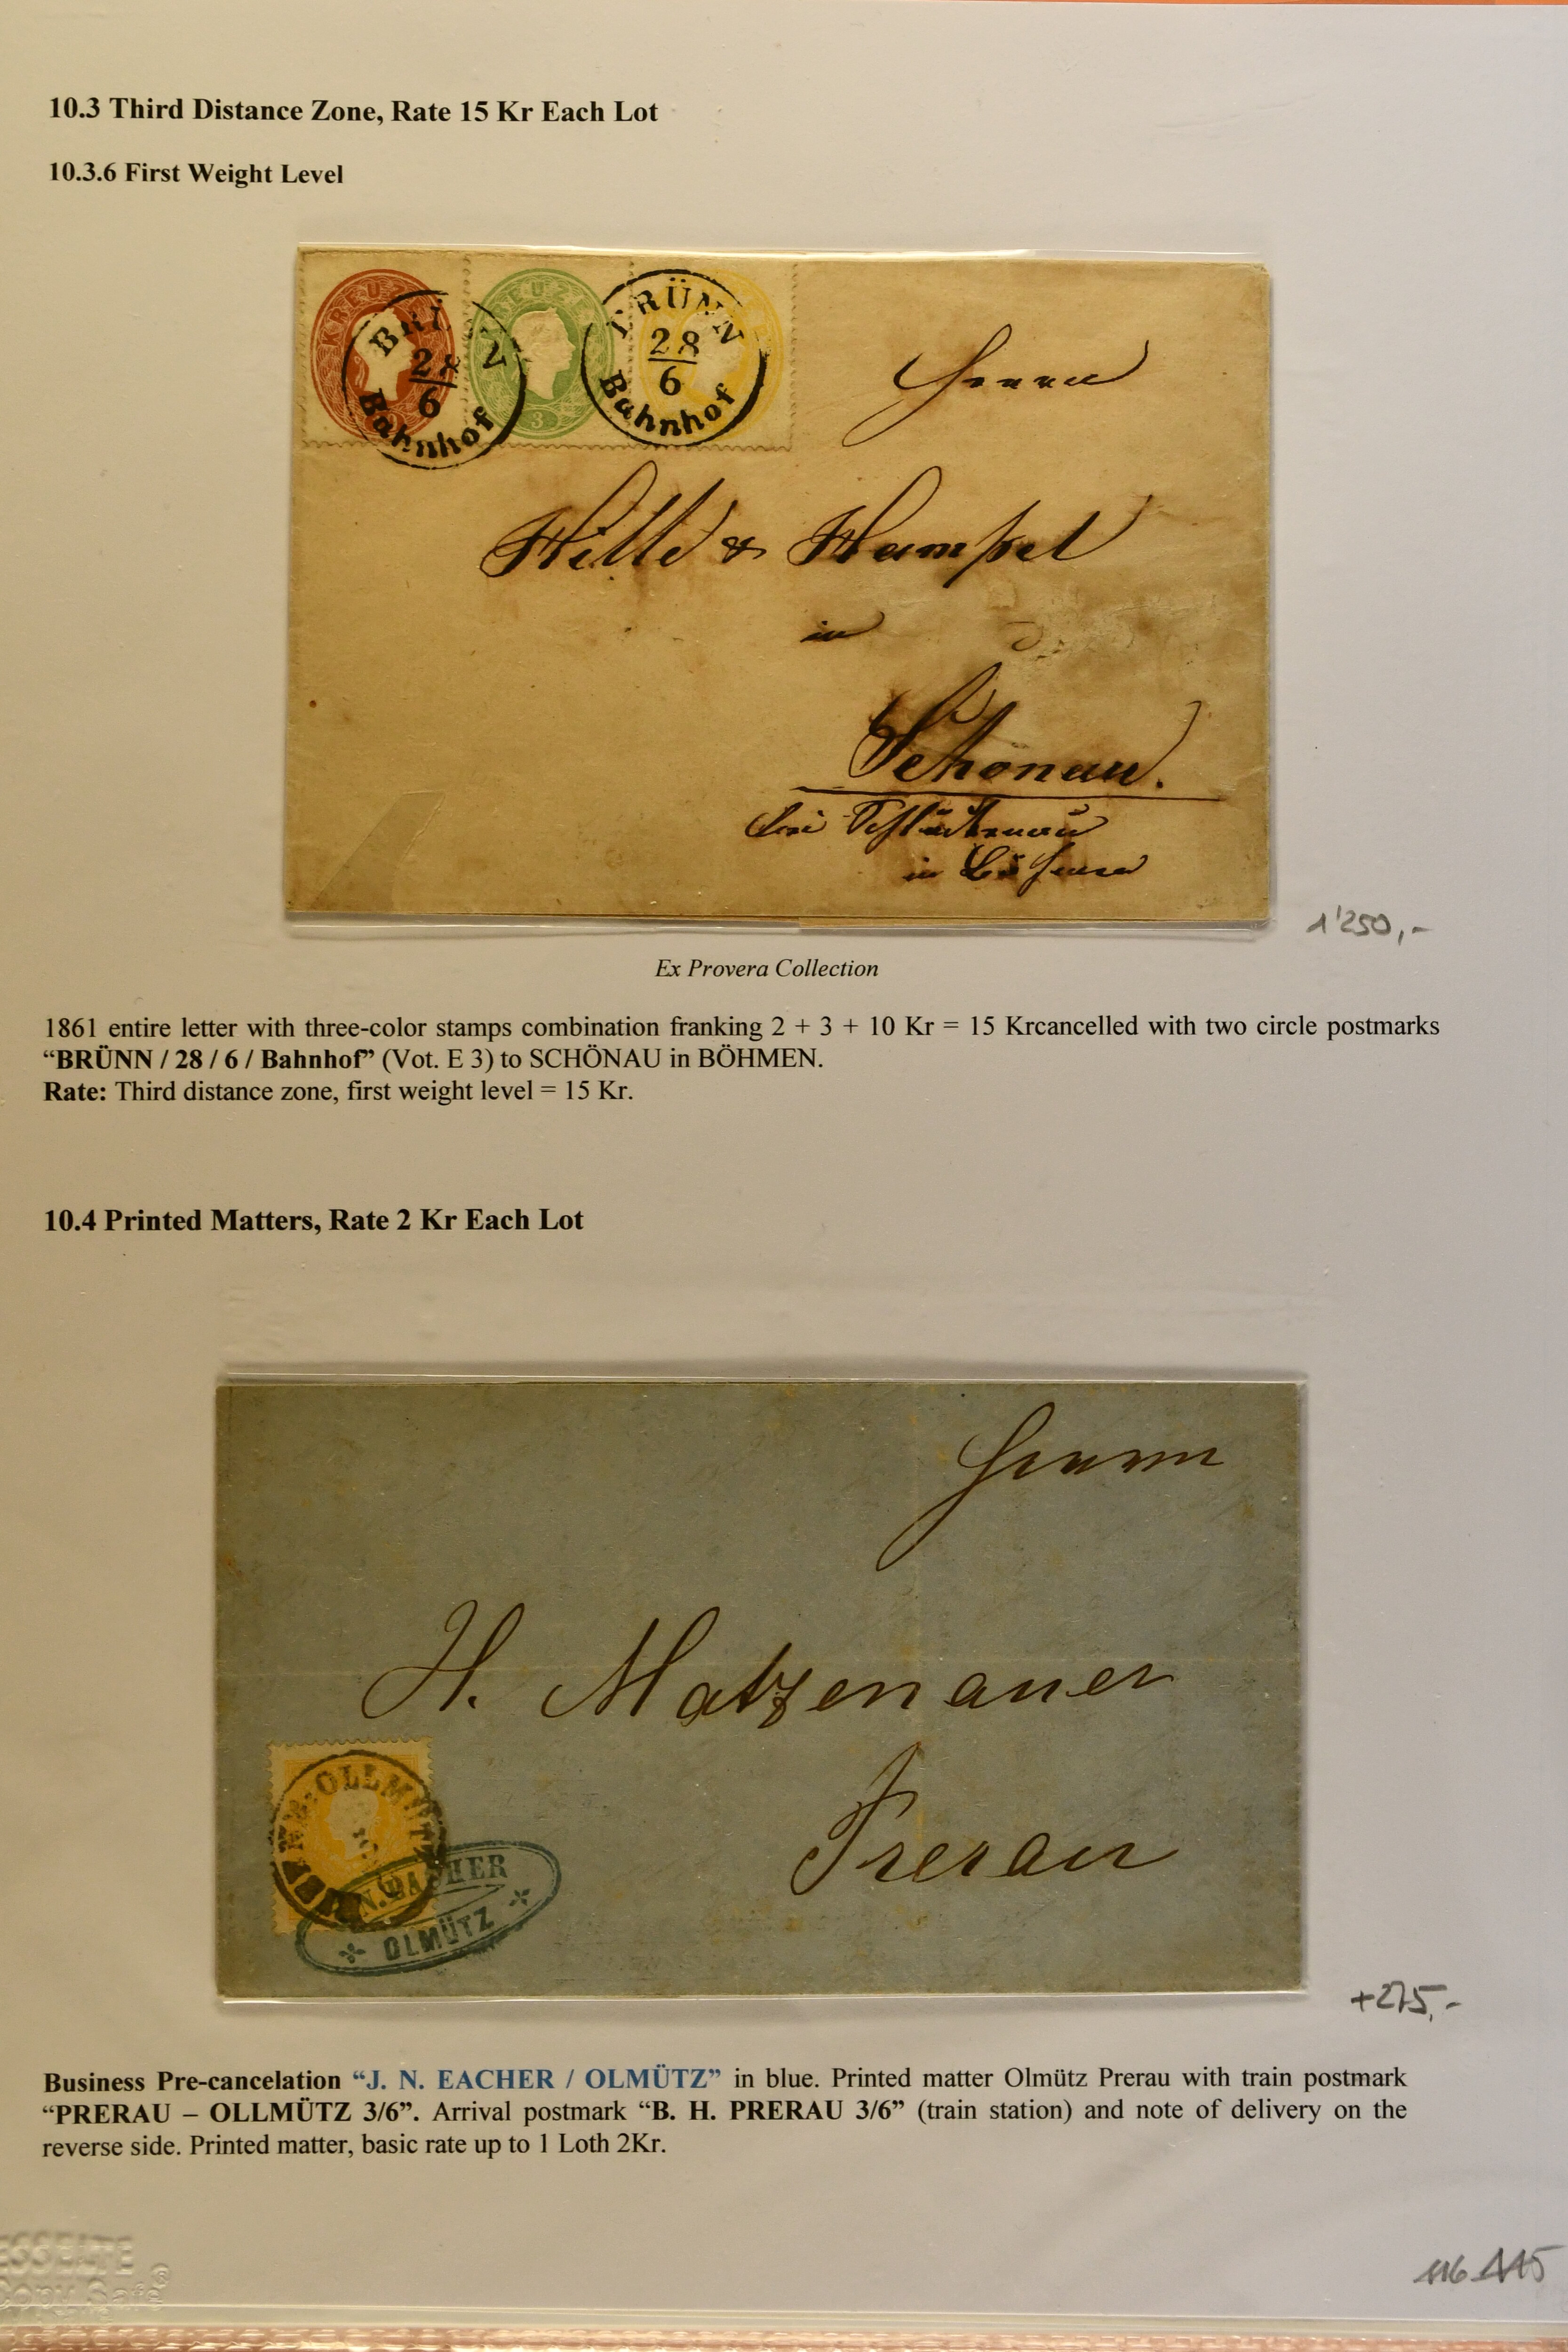 10.3 Third Distance Zone, Rate 15 Kr Each Lot
10.3.6 First Weight Level
KREUZE
KREUZE
3
BRÜ N
28
6
Bahnhof
BRÜNN
28
6
Bahnhof
Herrn
Hille & Hampel
in
Schönau.
bei Schluckenau
in Böhmen
1'250,-
Ex Provera Collection
1861 entire letter with three-color stamps combination franking 2 + 3 + 10 Kr = 15 Krcancelled with two circle postmarks
“BRÜNN / 28 / 6 / Bahnhof” (Vot. E 3) to SCHÖNAU in BÖHMEN.
Rate: Third distance zone, first weight level = 15 Kr.
10.4 Printed Matters, Rate 2 Kr Each Lot
Herrn
H. Matzenauer
Prerau
OLLMÜTZ
N. EACHER
OLMÜTZ
+275,-
Business Pre-cancelation “J. N. EACHER / OLMÜTZ” in blue. Printed matter Olmütz Prerau with train postmark
“PRERAU – OLLMÜTZ 3/6”. Arrival postmark “B. H. PRERAU 3/6” (train station) and note of delivery on the
reverse side. Printed matter, basic rate up to 1 Loth 2Kr.
116 115
ESSELTE
Copy Safe®